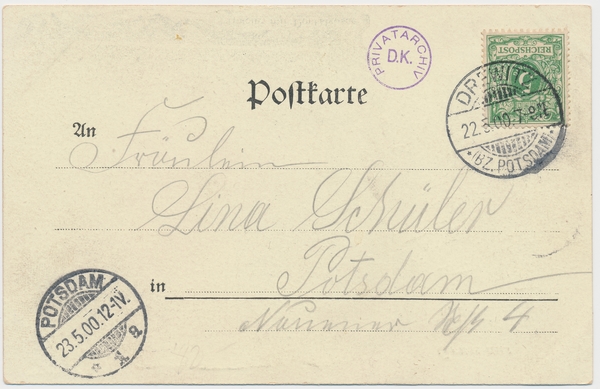 PRIVATARCHIV
D.K.
REICHSPOST
5
DREWITZ
22.5.00.7-8N.
*(BZ. POTSDAM)*
Postkarte
An
Fräulein
Lina Schüler
in
Potsdam
4
POTSDAM
23.5.00.12-1V.
* 1 a